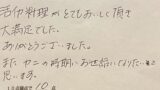 活竹料理がとてもおいしく頂き
大満足でした。
ありがとうございました。
また カニの時期にお世話になりたいと
思います。